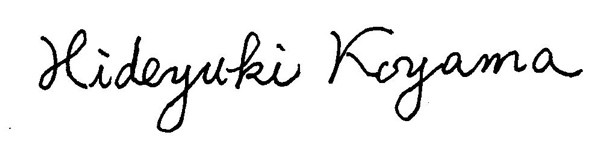 Hideyuki Koyama